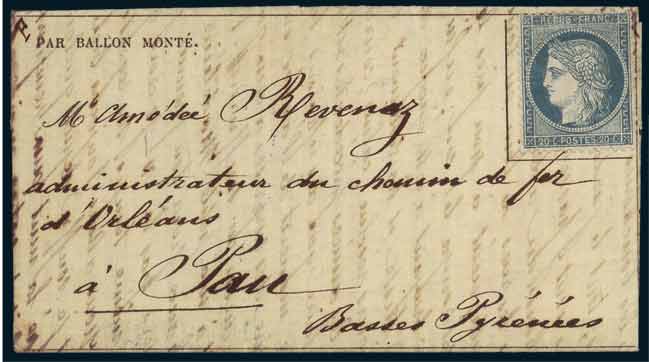 PAR BALLON MONTÉ.
REPUB. FRANC.
20·C·POSTES·20·C·
Mr Amédée Revenaz
administrateur du chemin de fer
d'Orléans
à Pau
Basses Pyrénées